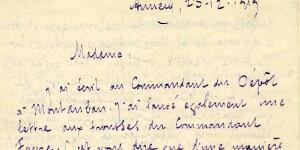 Annecy, 25-12-1919
Madame,
J'ai écrit au Commandant du Dépôt
à Montauban. J'ai lancé également une
lettre aux trousses du Commandant
c'est vous dire que d'une manière